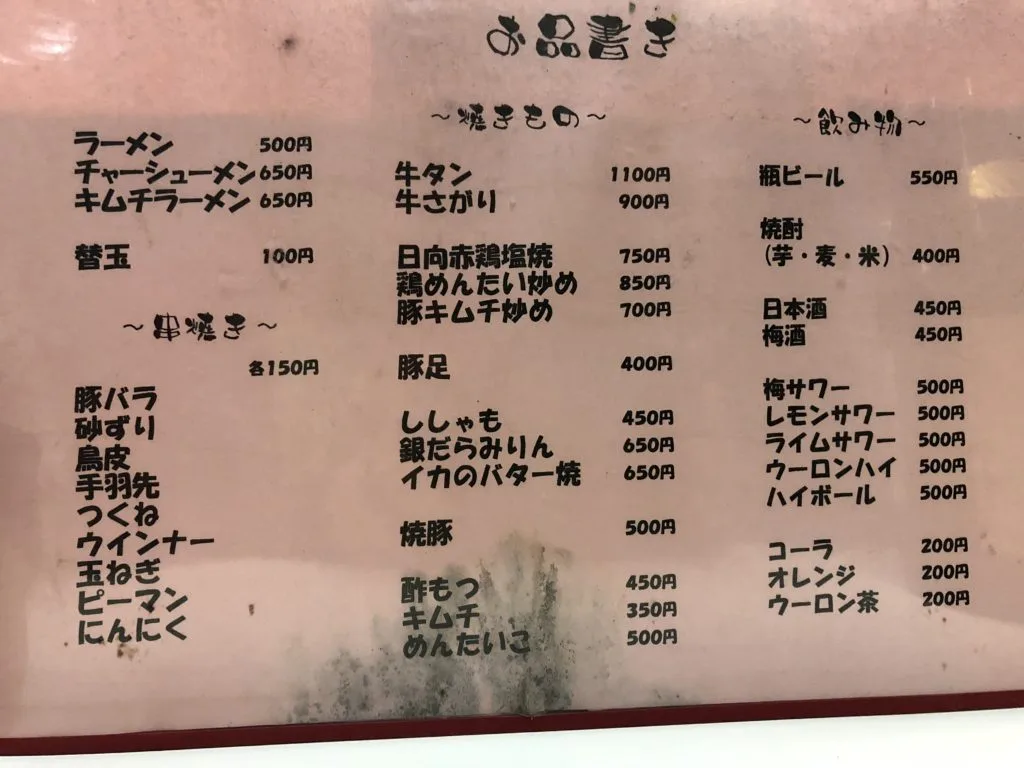 お品書き
ラーメン 500円
チャーシューメン 650円
キムチラーメン 650円
替玉 100円
～串焼き～
各150円
豚バラ
砂ずり
鳥皮
手羽先
つくね
ウインナー
玉ねぎ
ピーマン
にんにく
～焼きもの～
牛タン 1100円
牛さがり 900円
日向赤鶏塩焼 750円
鶏めんたい炒め 850円
豚キムチ炒め 700円
豚足 400円
ししゃも 450円
銀だらみりん 650円
イカのバター焼 650円
焼豚 500円
酢もつ 450円
キムチ 350円
めんたいこ 500円
～飲み物～
瓶ビール 550円
焼酎
（芋・麦・米） 400円
日本酒 450円
梅酒 450円
梅サワー 500円
レモンサワー 500円
ライムサワー 500円
ウーロンハイ 500円
ハイボール 500円
コーラ 200円
オレンジ 200円
ウーロン茶 200円